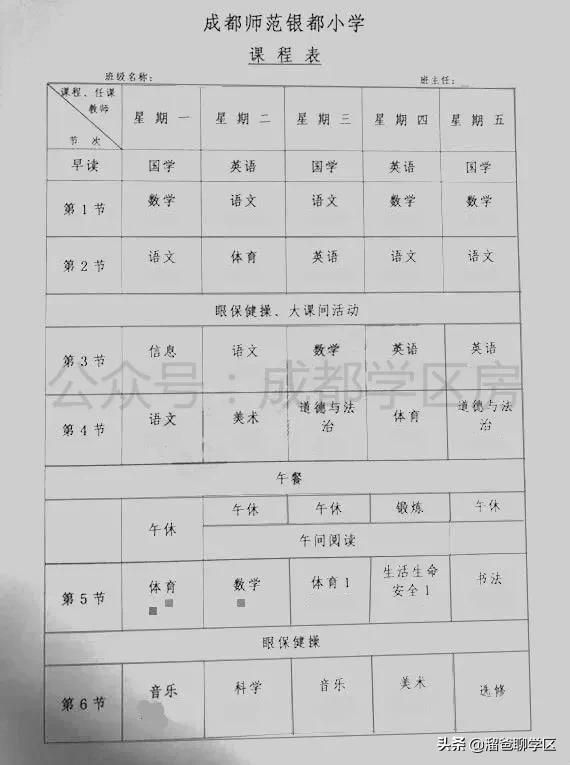 成都师范银都小学
课程表
班级名称:
班主任:
课程、任课
教师
节次
星期一 星期二 星期三 星期四 星期五
早读 国学 英语 国学 英语 国学
第1节 数学 语文 语文 数学 数学
第2节 语文 体育 英语 语文 语文
眼保健操、大课间活动
第3节 信息 语文 数学 英语 英语
公众号:成都学区房
第4节 语文 美术 道德与法治 体育 道德与法治
午餐
午休 午休 午休 锻炼 午休
午间阅读
第5节 体育 数学 体育1 生活生命安全1 书法
眼保健操
第6节 音乐 科学 音乐 美术 选修
头条 @溜爸聊学区